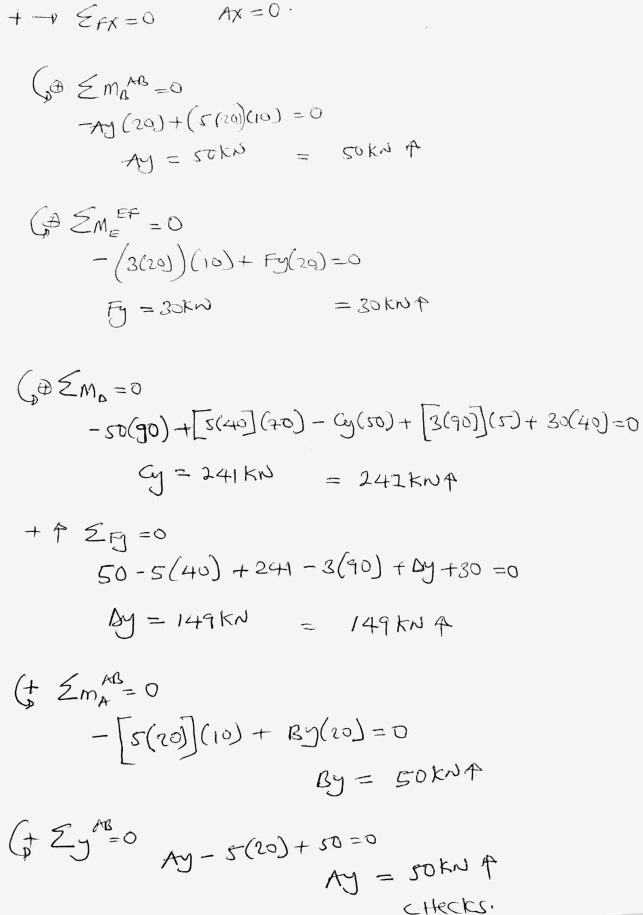 + → ΣFX = 0 AX = 0.
↺⊕ ΣM_B^AB = 0
-Ay (20) + (5(20)(10) = 0
Ay = 50KN = 50KN ↑
↺⊕ ΣM_E^EF = 0
- (3(20))(10) + Fy(20) = 0
Fy = 30KN = 30KN ↑
↺⊕ ΣM_D = 0
-50(90) + [5(40](70) - Cy(50) + [3(90]](5) + 30(40) = 0
Cy = 241KN = 241KN ↑
+ ↑ ΣFy = 0
50 - 5(40) + 241 - 3(90) + Dy + 30 = 0
Dy = 149KN = 149KN ↑
↺+ ΣM_A^AB = 0
- [5(20)](10) + By(20) = 0
By = 50KN ↑
↺+ Σy^AB = 0 Ay - 5(20) + 50 = 0
Ay = 50KN ↑
CHECKS.